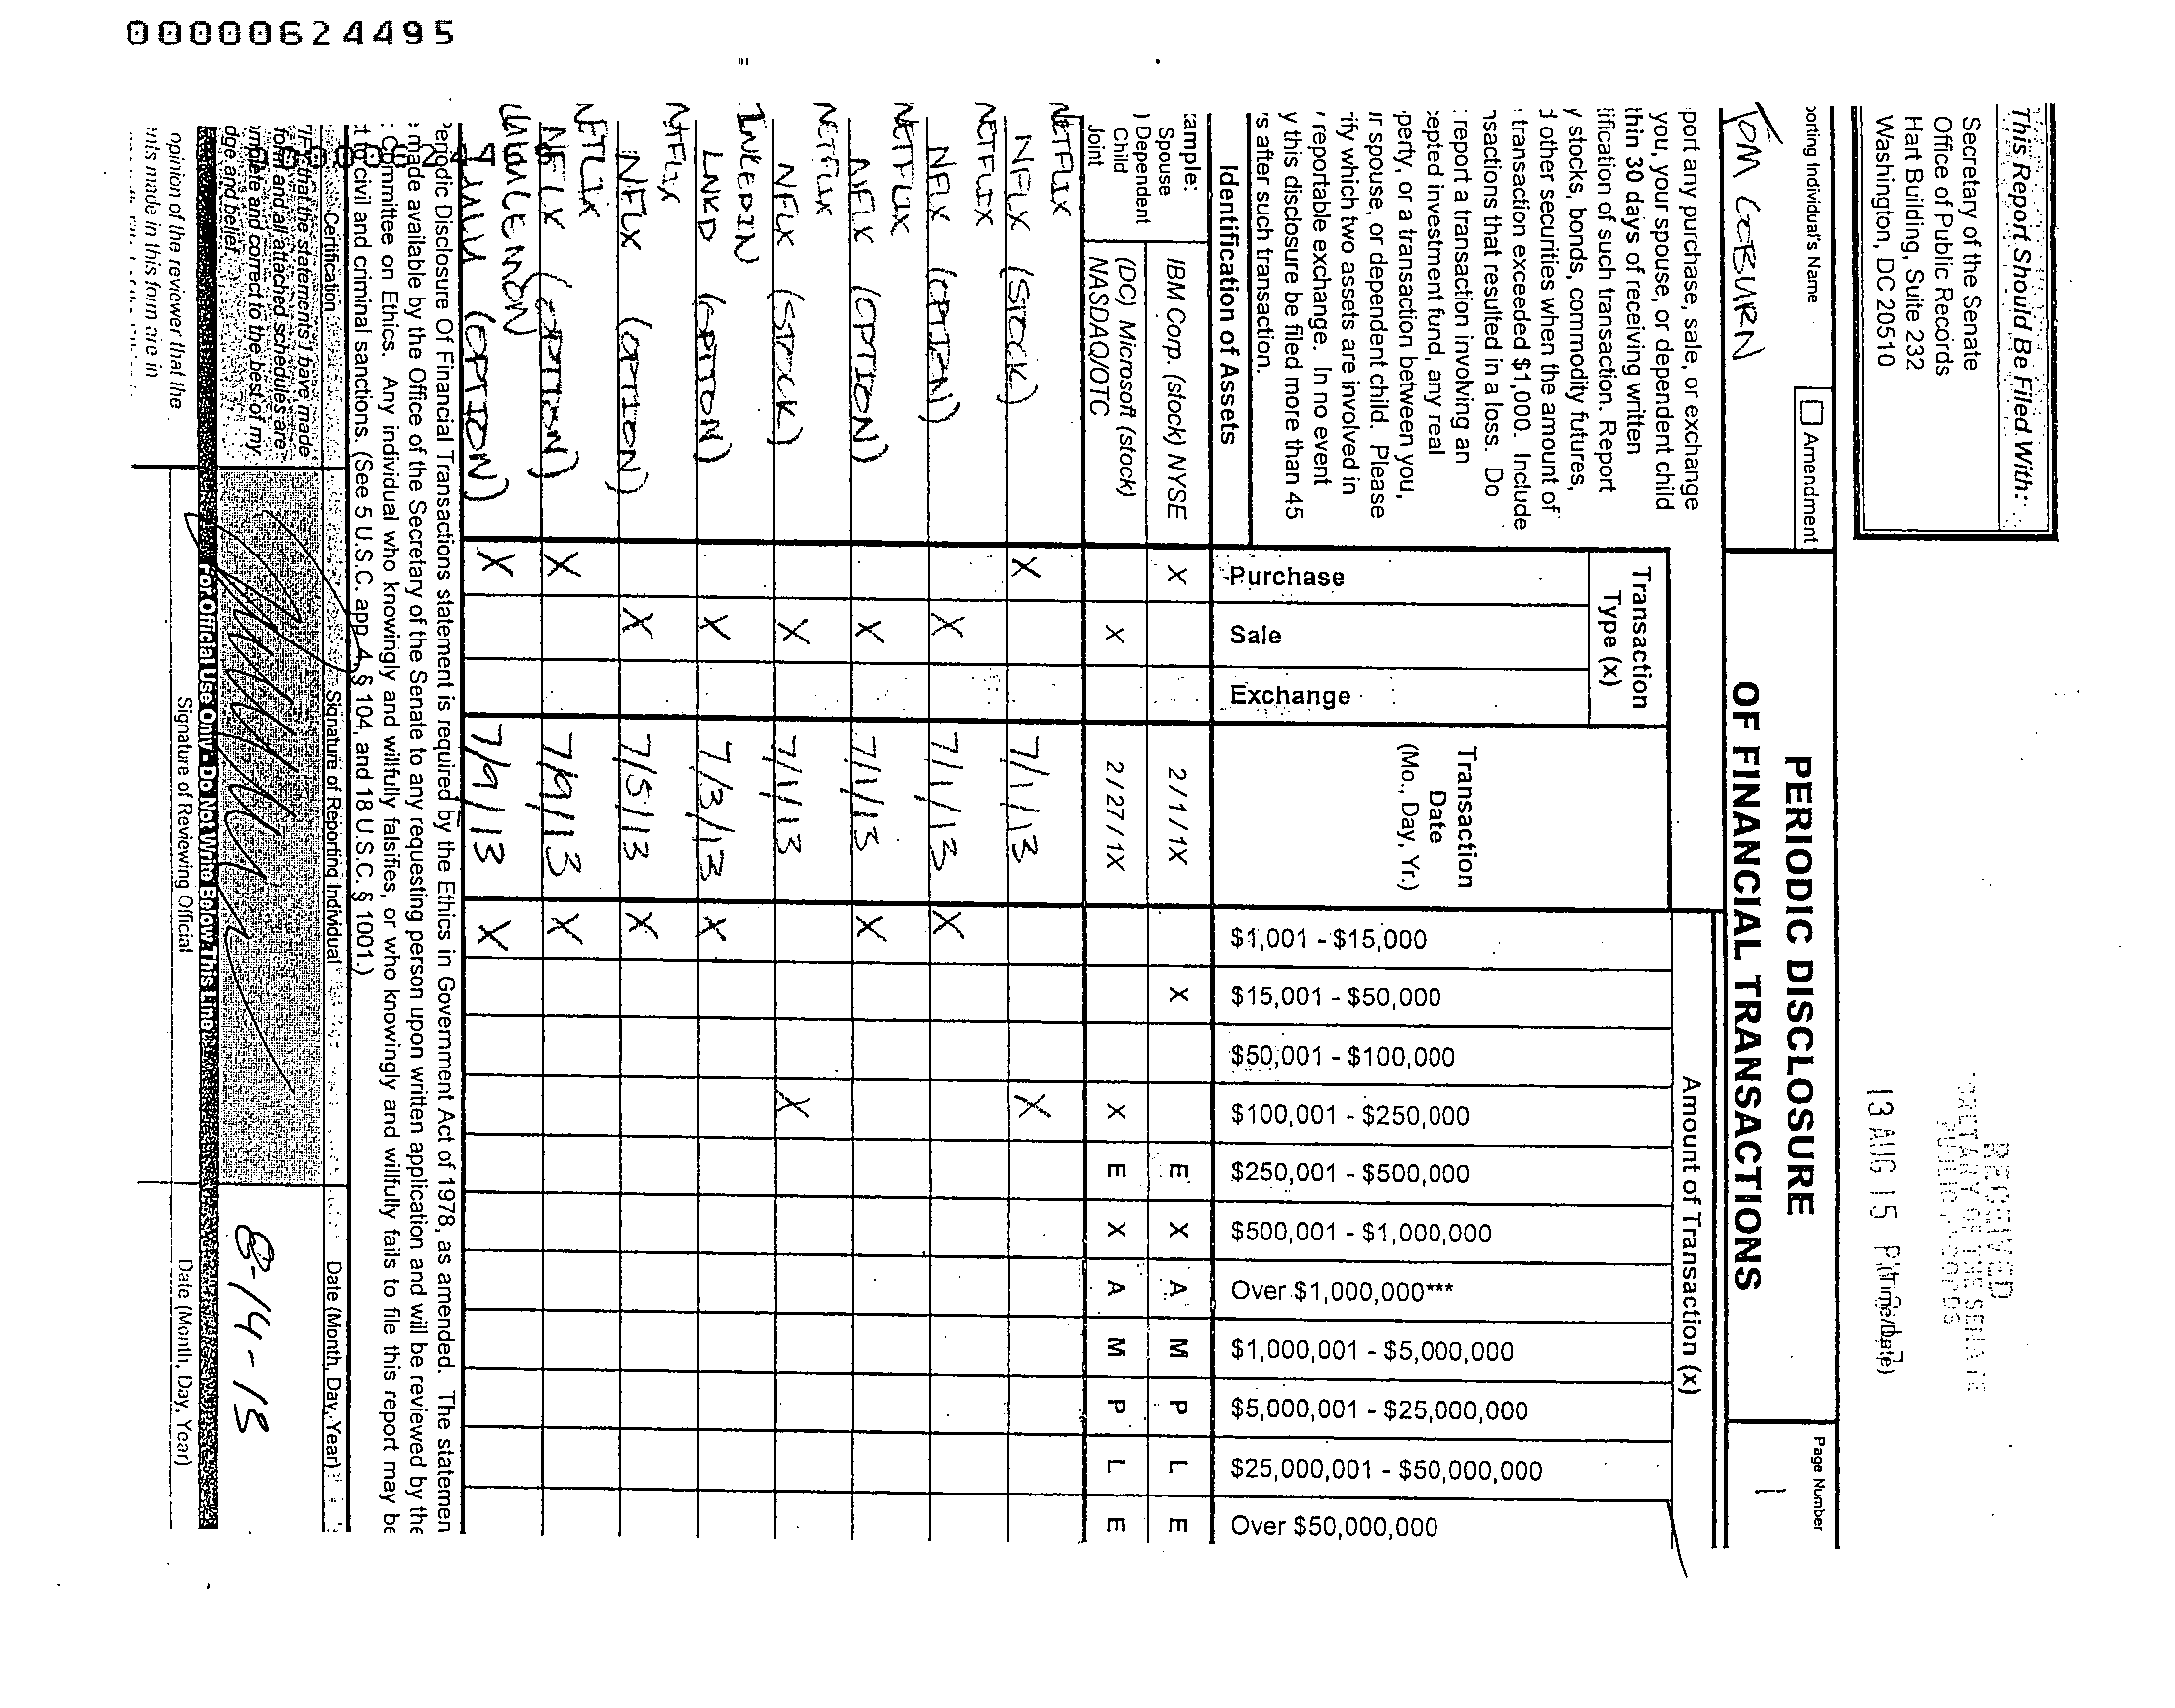 00000624495
This Report Should Be Filed With:
Secretary of the Senate
Office of Public Records
Hart Building, Suite 232
Washington, DC 20510
RECEIVED
13 AUG 15
orting Individual's Name
Amendment
TOM COBURN
PERIODIC DISCLOSURE
OF FINANCIAL TRANSACTIONS
Page Number
1
port any purchase, sale, or exchange
you, your spouse, or dependent child
thin 30 days of receiving written
tification of such transaction. Report
y stocks, bonds, commodity futures,
d other securities when the amount of
transaction exceeded $1,000. Include
nsactions that resulted in a loss. Do
report a transaction involving an
cepted investment fund, any real
perty, or a transaction between you,
ur spouse, or dependent child. Please
rify which two assets are involved in
reportable exchange. In no event
y this disclosure be filed more than 45
's after such transaction.
Transaction
Type (x)
Transaction
Date
(Mo., Day, Yr.)
Amount of Transaction (x)
Identification of Assets
Purchase
Sale
Exchange
$1,001 - $15,000
$15,001 - $50,000
$50,001 - $100,000
$100,001 - $250,000
$250,001 - $500,000
$500,001 - $1,000,000
Over $1,000,000***
$1,000,001 - $5,000,000
$5,000,001 - $25,000,000
$25,000,001 - $50,000,000
Over $50,000,000
ample:
Spouse
) Dependent
Child
Joint
IBM Corp. (stock) NYSE X 2/1/1X X E X A M P L E
(DC) Microsoft (stock)
NASDAQ/OTC X 2/27/1X X E X A M P L E
NETFLIX
NFLX (STOCK) X 7/1/13 X
NETFLIX
NFLX (OPTION) X 7/1/13 X
NETFLIX
NFLX (OPTION) X 7/1/13 X
NETFLIX
NFLX (STOCK) X 7/1/13 X
LINKEDIN
LNKD (OPTION) X 7/3/13 X
NETFLIX
NFLX (OPTION) X 7/5/13 X
NETFLIX
NFLX (OPTION) X 7/9/13 X
LULULEMON
LULU (OPTION) X 7/9/13 X
Periodic Disclosure Of Financial Transactions statement is required by the Ethics in Government Act of 1978, as amended. The statemen
made available by the Office of the Secretary of the Senate to any requesting person upon written application and will be reviewed by the
Committee on Ethics. Any individual who knowingly and willfully falsifies, or who knowingly and willfully fails to file this report may be
ct to civil and criminal sanctions. (See 5 U.S.C. app. 4, § 104, and 18 U.S.C. § 1001.)
Certification
Signature of Reporting Individual
Date (Month, Day, Year)
TIFY that the statements I have made
form and all attached schedules are
omplete and correct to the best of my
dge and belief.
8-14-13
For Official Use Only - Do Not Write Below This Line
opinion of the reviewer that the
ents made in this form are in
Signature of Reviewing Official
Date (Month, Day, Year)